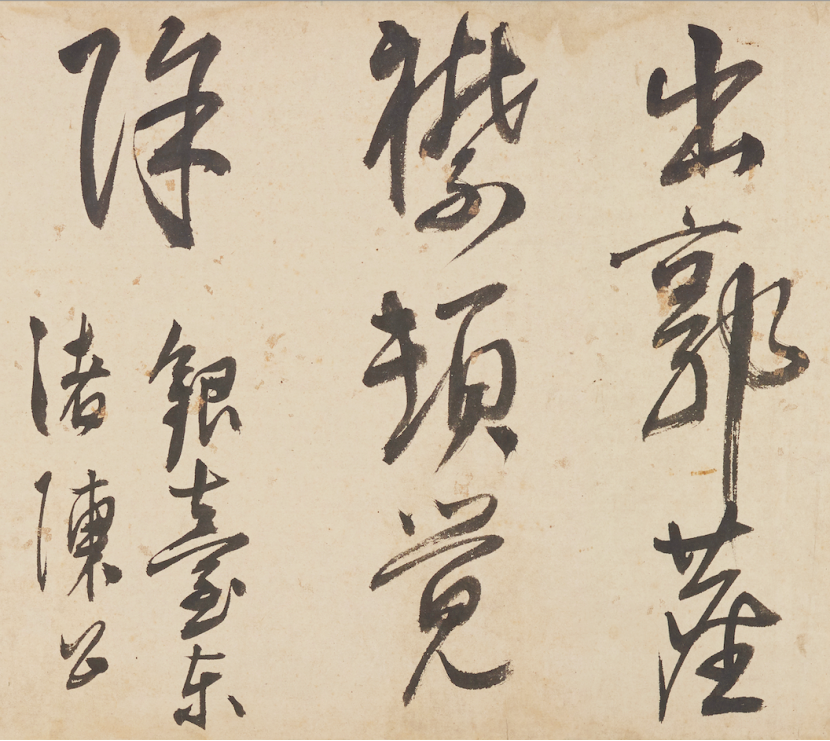 出郭塵
襟頓覺
除
銀臺東
渚陳公